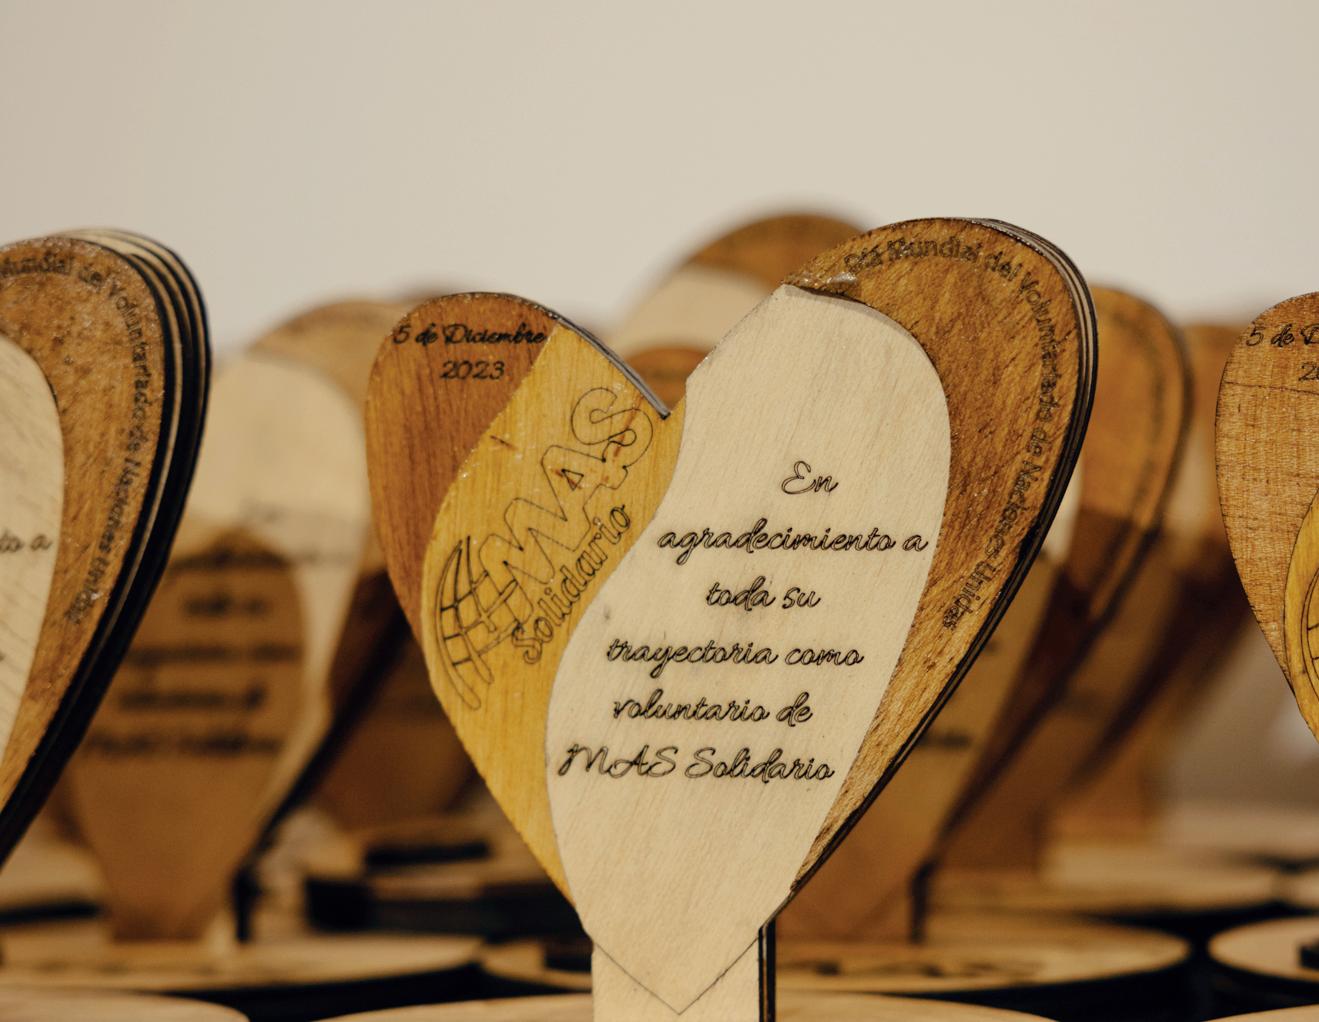 5 de Diciembre
2023
MAS
Solidario
En
agradecimiento a
toda su
trayectoria como
voluntario de
MAS Solidario
Día Mundial del Voluntariado de Naciones Unidas
Mundial del Voluntariado de Naciones Unidas
to a
5 de D